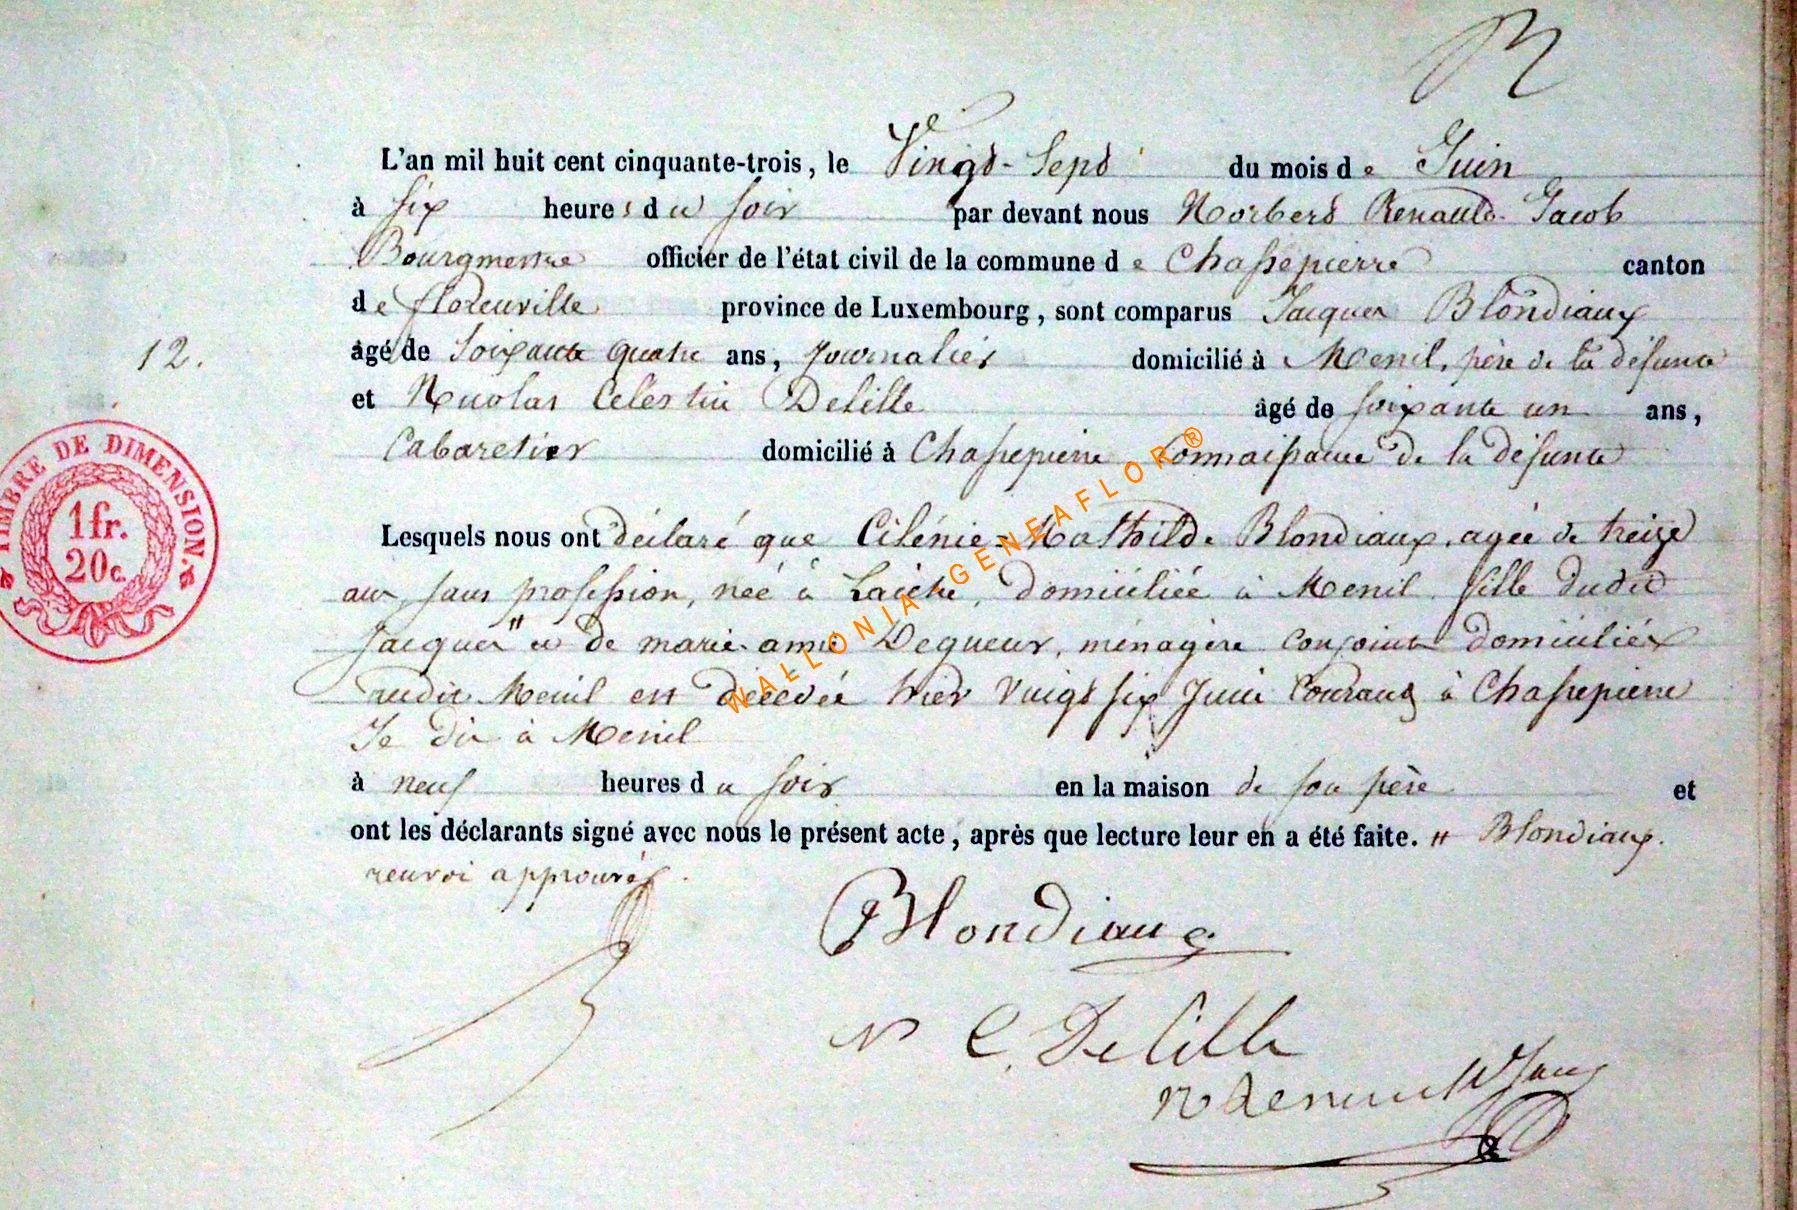 L'an mil huit cent cinquante-trois, le Vingt-Sept du mois de Juin
à six heures du soir par devant nous Norbert Renauld-Jacob
Bourgmestre officier de l'état civil de la commune de Chassepierre canton
de florenville province de Luxembourg, sont comparus Jacques Blondiaux
âgé de Soixante quatre ans, journalier domicilié à Menil, père de la défunte
et Nicolas Célestin Delille âgé de soixante un ans,
Cabaretier domicilié à Chassepierre Connaissance de la défunte
Lesquels nous ont déclaré que Cilénie-Mathilde Blondiaux, agée de treize
ans, sans profession, née à Laiche, domiciliée à Menil, fille dudit
Jacques " et de marie-anne Dequeur, ménagère conjoints domiciliés
audit Menil est décédée hier vingt six Juin courant à Chassepierre
Je dis à Menil
à neuf heures du soir en la maison de son père et
ont les déclarants signé avec nous le présent acte, après que lecture leur en a été faite. " Blondiaux.
renvoi approuvés.
Blondiaux
N C. Delille
12.
TIMBRE DE DIMENSION.
1fr.
20c.
WALLONIA GENEAFLOR®